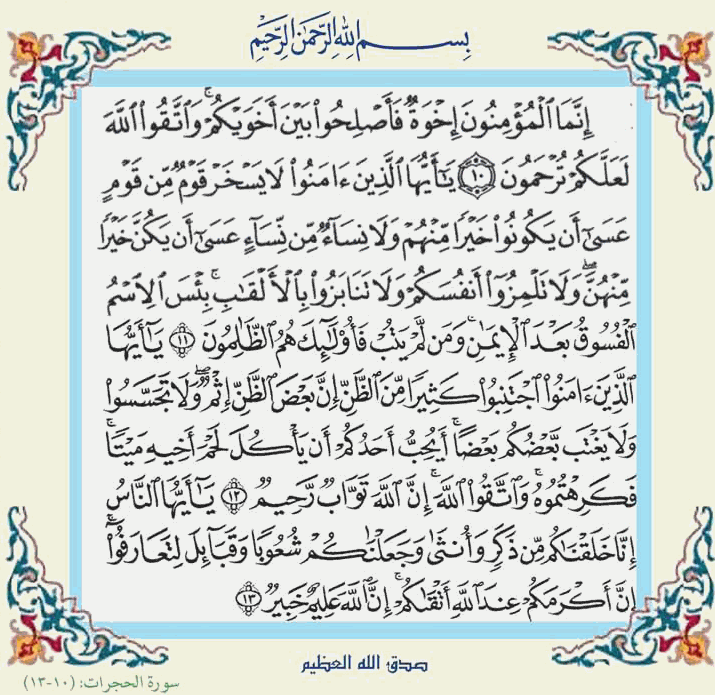 بِسْمِ اللهِ الرَّحْمٰنِ الرَّحِيْمِ
إِنَّمَا ٱلْمُؤْمِنُونَ إِخْوَةٌ فَأَصْلِحُوا۟ بَيْنَ أَخَوَيْكُمْ ۚ وَٱتَّقُوا۟ ٱللَّهَ
لَعَلَّكُمْ تُرْحَمُونَ ١٠ يَـٰٓأَيُّهَا ٱلَّذِينَ ءَامَنُوا۟ لَا يَسْخَرْ قَوْمٌ مِّن قَوْمٍ
عَسَىٰٓ أَن يَكُونُوا۟ خَيْرًا مِّنْهُمْ وَلَا نِسَآءٌ مِّن نِّسَآءٍ عَسَىٰٓ أَن يَكُنَّ خَيْرًا
مِّنْهُنَّ ۖ وَلَا تَلْمِزُوٓا۟ أَنفُسَكُمْ وَلَا تَنَابَزُوا۟ بِٱلْأَلْقَـٰبِ ۖ بِئْسَ ٱلِٱسْمُ
ٱلْفُسُوقُ بَعْدَ ٱلْإِيمَـٰنِ ۚ وَمَن لَّمْ يَتُبْ فَأُو۟لَـٰٓئِكَ هُمُ ٱلظَّـٰلِمُونَ ١١ يَـٰٓأَيُّهَا
ٱلَّذِينَ ءَامَنُوا۟ ٱجْتَنِبُوا۟ كَثِيرًا مِّنَ ٱلظَّنِّ إِنَّ بَعْضَ ٱلظَّنِّ إِثْمٌ ۖ وَلَا تَجَسَّسُوا۟
وَلَا يَغْتَب بَّعْضُكُم بَعْضًا ۚ أَيُحِبُّ أَحَدُكُمْ أَن يَأْكُلَ لَحْمَ أَخِيهِ مَيْتًا
فَكَرِهْتُمُوهُ ۚ وَٱتَّقُوا۟ ٱللَّهَ ۚ إِنَّ ٱللَّهَ تَوَّابٌ رَّحِيمٌ ١٢ يَـٰٓأَيُّهَا ٱلنَّاسُ
إِنَّا خَلَقْنَـٰكُم مِّن ذَكَرٍ وَأُنثَىٰ وَجَعَلْنَـٰكُمْ شُعُوبًا وَقَبَآئِلَ لِتَعَارَفُوٓا۟ ۚ
إِنَّ أَكْرَمَكُمْ عِندَ ٱللَّهِ أَتْقَىٰكُمْ ۚ إِنَّ ٱللَّهَ عَلِيمٌ خَبِيرٌ ١٣
صدق الله العظيم
سورة الحجرات: (١٠-١٣)